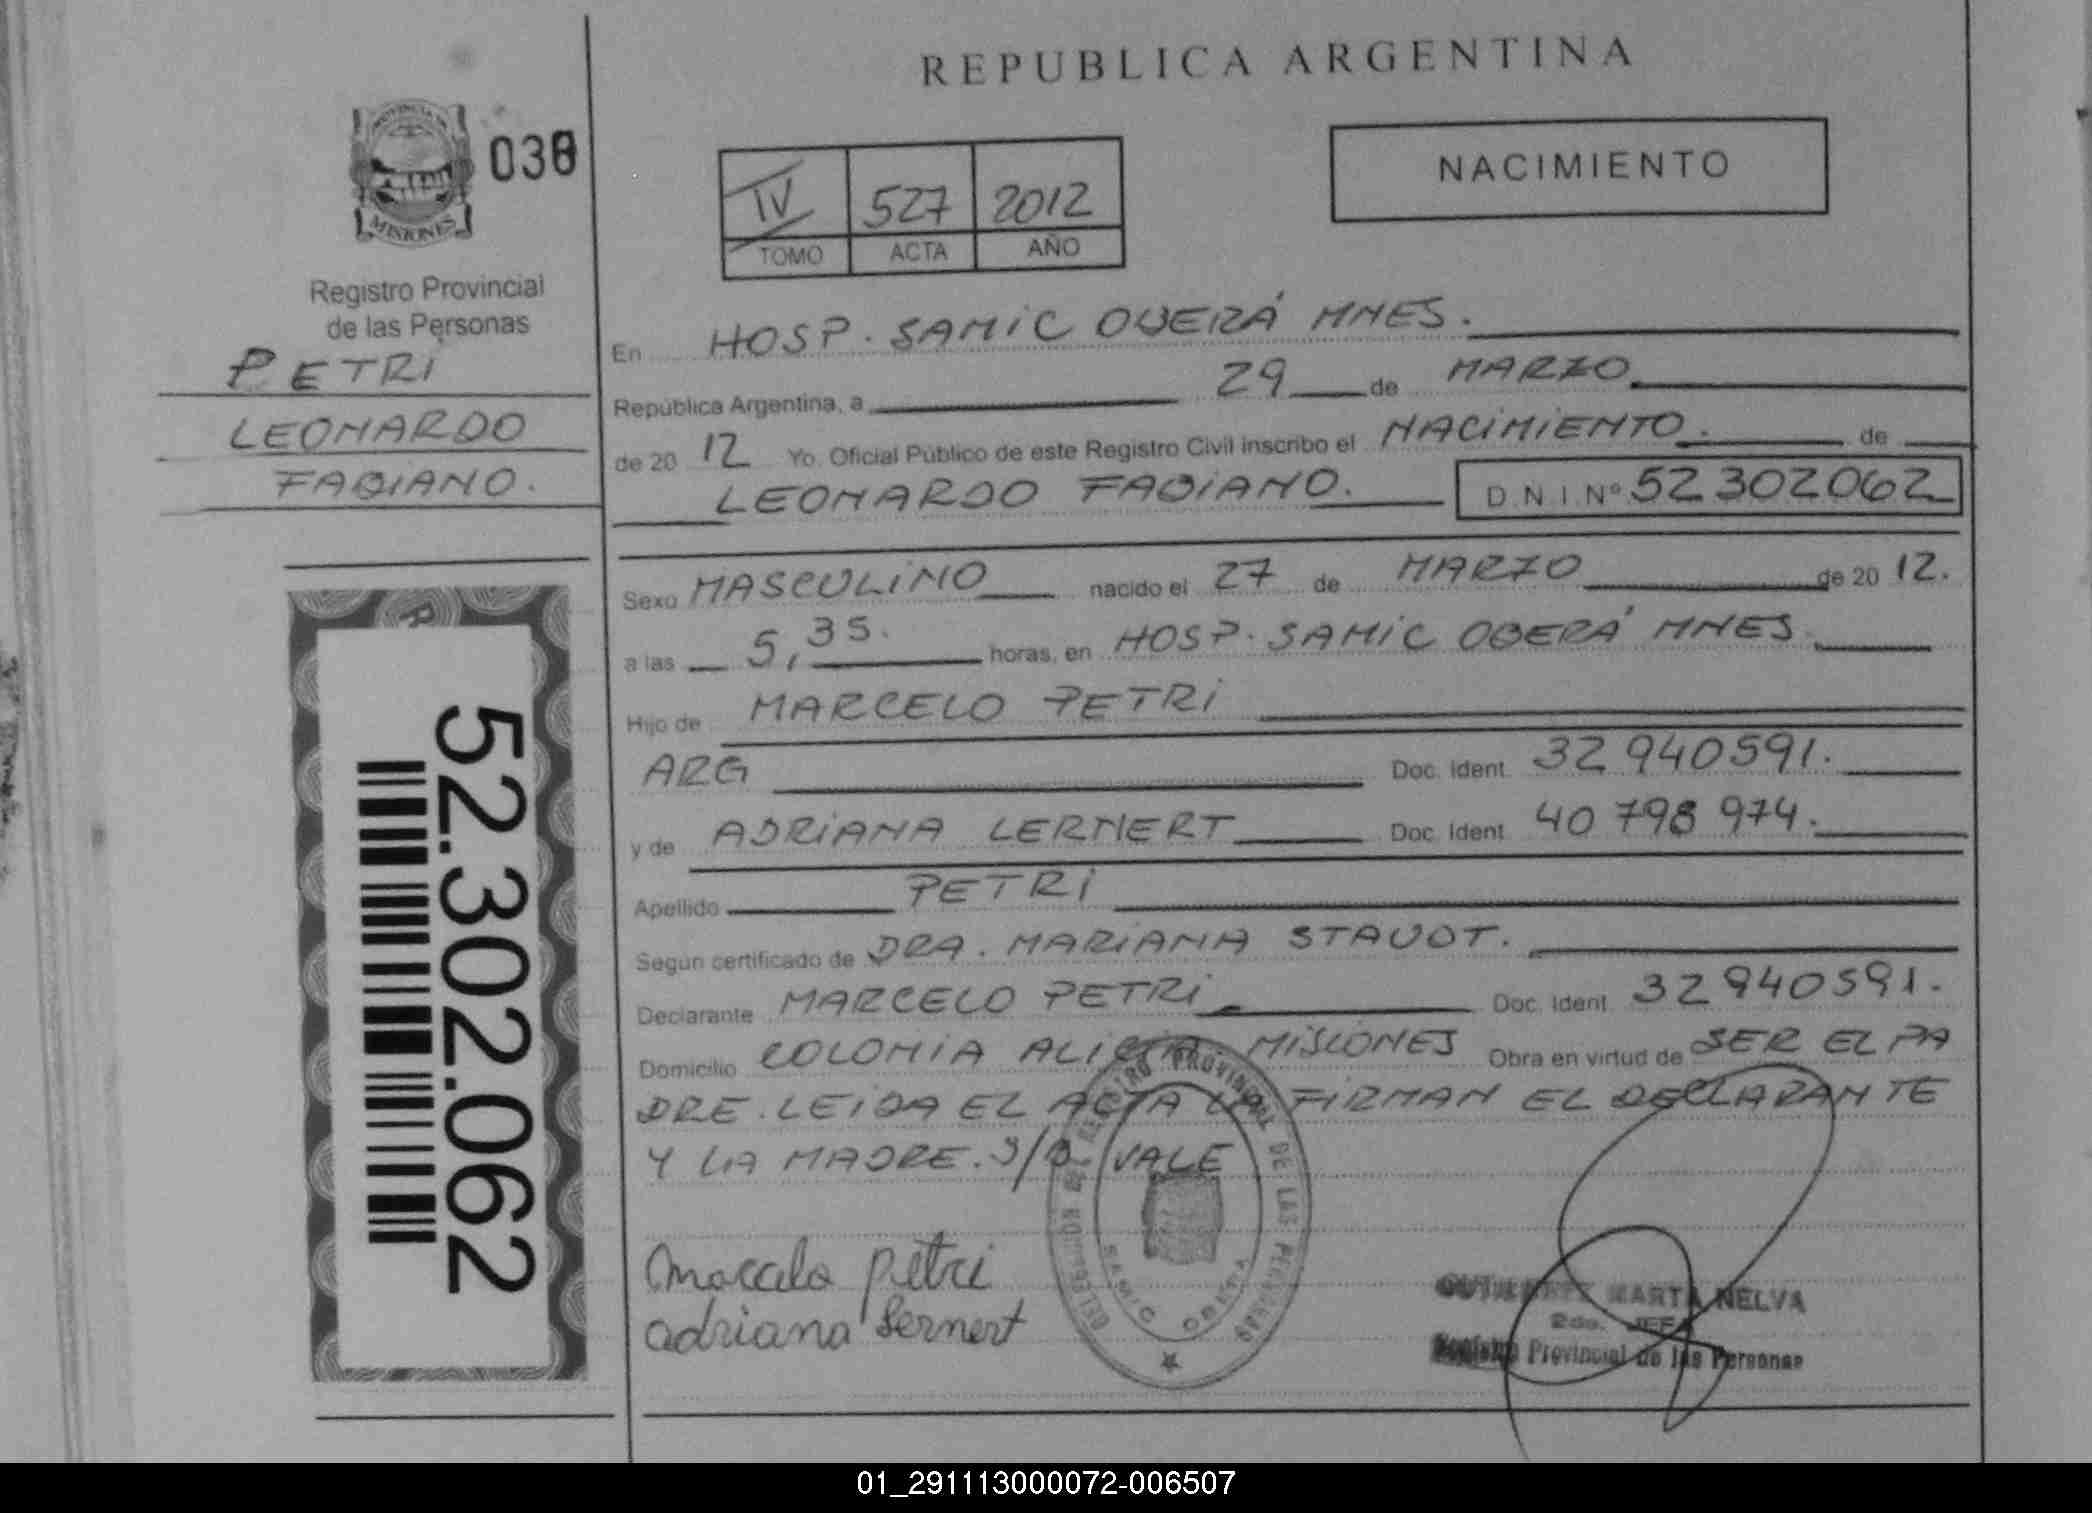 REPUBLICA ARGENTINA
PROVINCIA DE
MISIONES
038
NACIMIENTO
IV 527 2012
TOMO ACTA AÑO
Registro Provincial
de las Personas
PETRI
LEONARDO
FABIANO.
52.302.062
En HOSP. SAMIC OBERÁ MNES.
República Argentina, a 29 de MARZO
de 20 12 Yo Oficial Público de este Registro Civil inscribo el NACIMIENTO. de
LEONARDO FABIANO. D.N.I. Nº 52302062
Sexo MASCULINO nacido el 27 de MARZO de 20 12.
a las 5,35. horas, en HOSP. SAMIC OBERÁ MNES
Hijo de MARCELO PETRI
ARG Doc. Ident. 32940591.
y de ADRIANA LERNERT Doc. Ident. 40798974.
Apellido PETRI
Segun certificado de DRA. MARIANA STAUDT.
Declarante MARCELO PETRI Doc. Ident. 32940591.
Domicilio COLONIA ALICIA MISIONES Obra en virtud de SER EL PA
DRE. LEIDA EL ACTA LA FIRMAN EL DECLARANTE
Y LA MADRE. S/B VALE
Marcelo Petri
adriana Lernert
DELEGACION DEL REGISTRO PROVINCIAL DE LAS PERSONAS
SAMIC OBERA
GUTIERREZ MARTA NELVA
2do. JEFE
Registro Provincial de las Personas
01_291113000072-006507